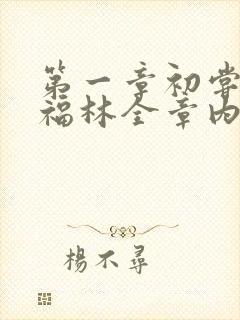 第一章初尝
福林全章内
楊不尋